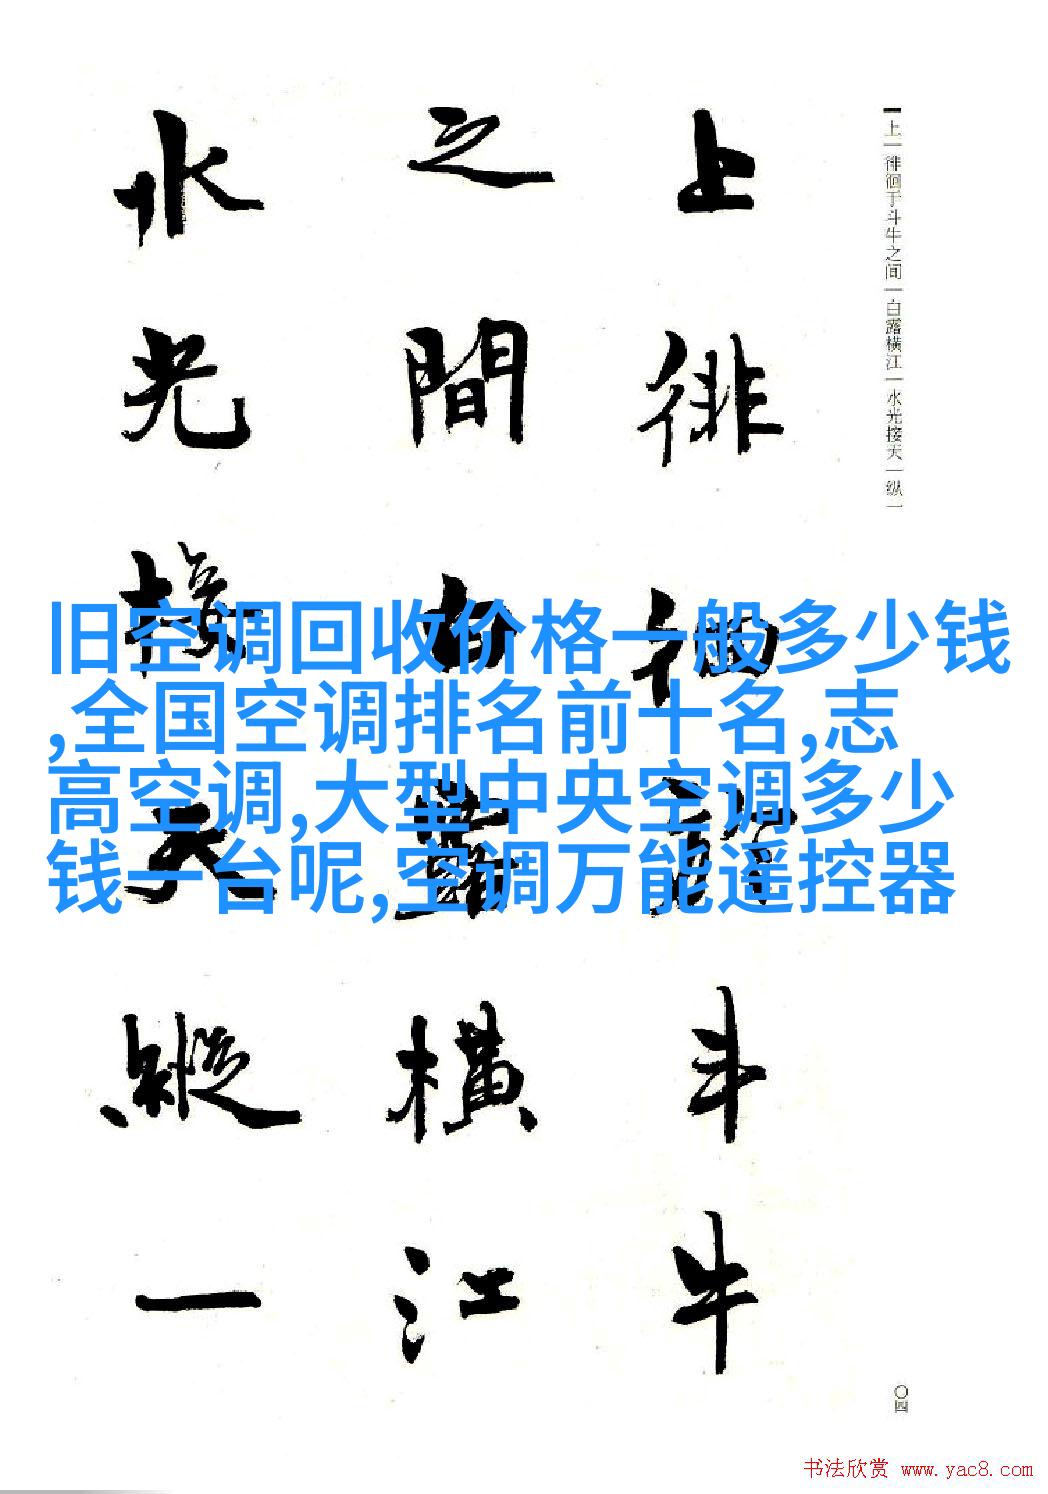 上一徘徊于斗牛之间一白露横江一水光接天一纵一
上徘徊於斗牛
之間白露横江
水光接天縱一
旧空调回收价格一般多少钱
,全国空调排名前十名,志
高空调,大型中央空调多少
钱一台呢,空调万能遥控器
〇四
书法欣赏 www.yac8.com